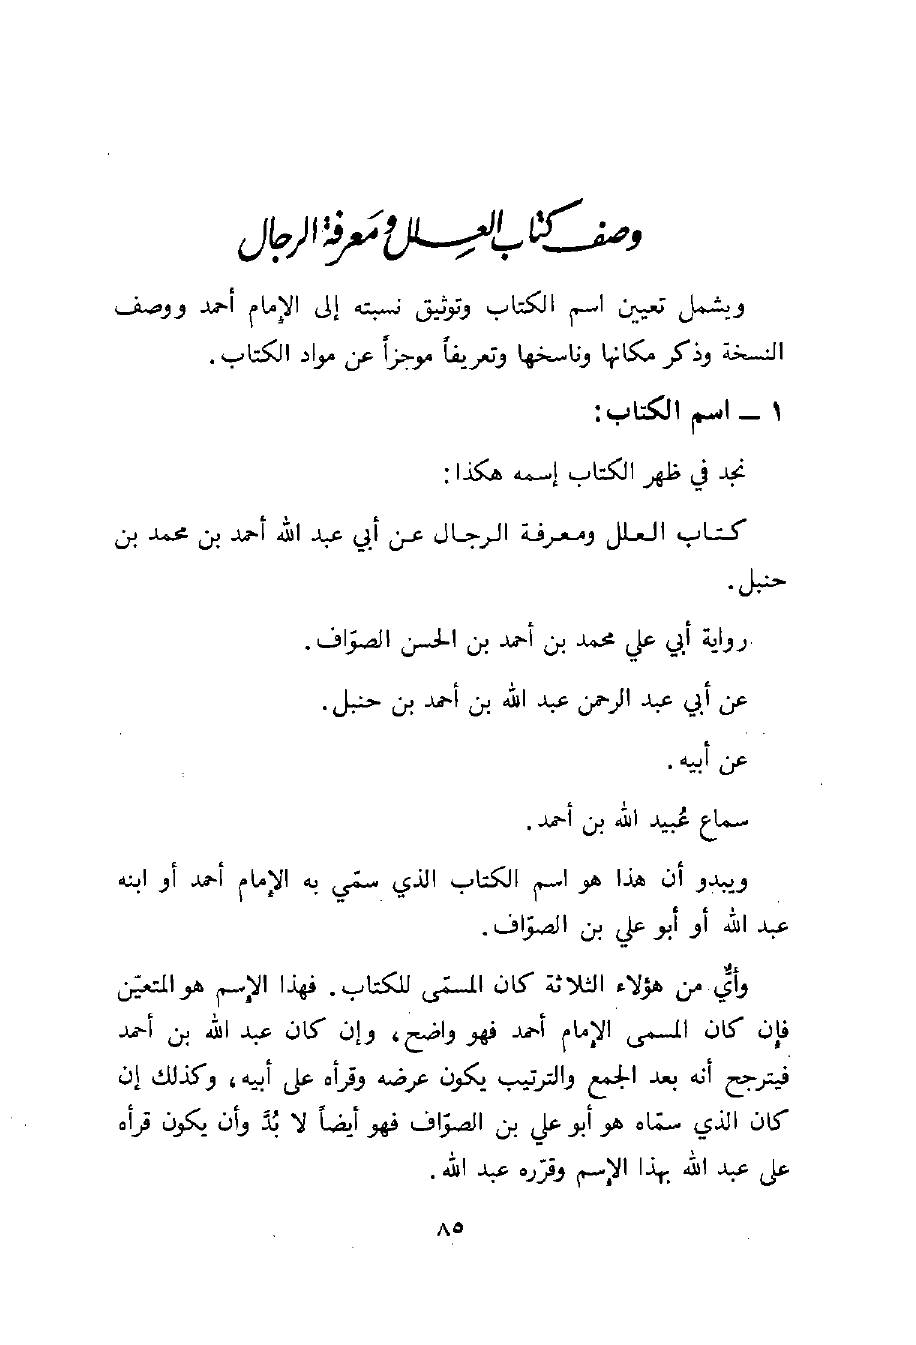 وصف كتاب العلل ومَعرفة الرجال
ويشمل تعيين اسم الكتاب وتوثيق نسبته إلى الإمام أحمد ووصف
النسخة وذكر مكانها وناسخها وتعريفاً موجزاً عن مواد الكتاب.
١ ــ اسم الكتاب:
نجد في ظهر الكتاب إسمه هكذا:
كتاب العلل ومعرفة الرجال عن أبي عبد الله أحمد بن محمد بن
حنبل.
رواية أبي علي محمد بن أحمد بن الحسن الصوّاف.
عن أبي عبد الرحمن عبد الله بن أحمد بن حنبل.
عن أبيه.
سماع عُبيد الله بن أحمد.
ويبدو أن هذا هو اسم الكتاب الذي سمّي به الإمام أحمد أو ابنه
عبد الله أو أبو علي بن الصوّاف.
وأيٌّ من هؤلاء الثلاثة كان المسمّى للكتاب. فهذا الإسم هو المتعيّن
فإن كان المسمى الإمام أحمد فهو واضح، وإن كان عبد الله بن أحمد
فيترجح أنه بعد الجمع والترتيب يكون عرضه وقرأه على أبيه، وكذلك إن
كان الذي سمّاه هو أبو علي بن الصوّاف فهو أيضاً لا بُدَّ وأن يكون قرأه
على عبد الله بهذا الإسم وقرّره عبد الله.
٨٥